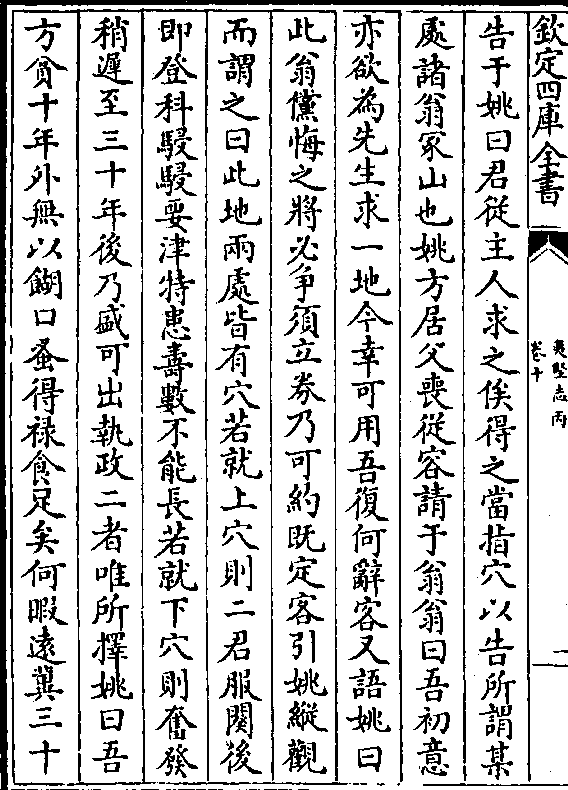 欽定四庫全書
夷堅志丙
卷十
一
告于姚曰君從主人求之俟得之當指穴以告所謂某
處諸翁冢山也姚方居父喪從容請于翁翁曰吾初意
亦欲為先生求一地今幸可用吾復何辭客又語姚曰
此翁儻悔之將必争須立券乃可約既定客引姚縱觀
而謂之曰此地兩處皆有穴若就上穴則二君服闋後
即登科駸駸要津特患壽數不能長若就下穴則奮發
稍遲至三十年後乃盛可出執政二者唯所擇姚曰吾
方貧十年外無以餬口蚤得禄食足矣何暇遠冀三十